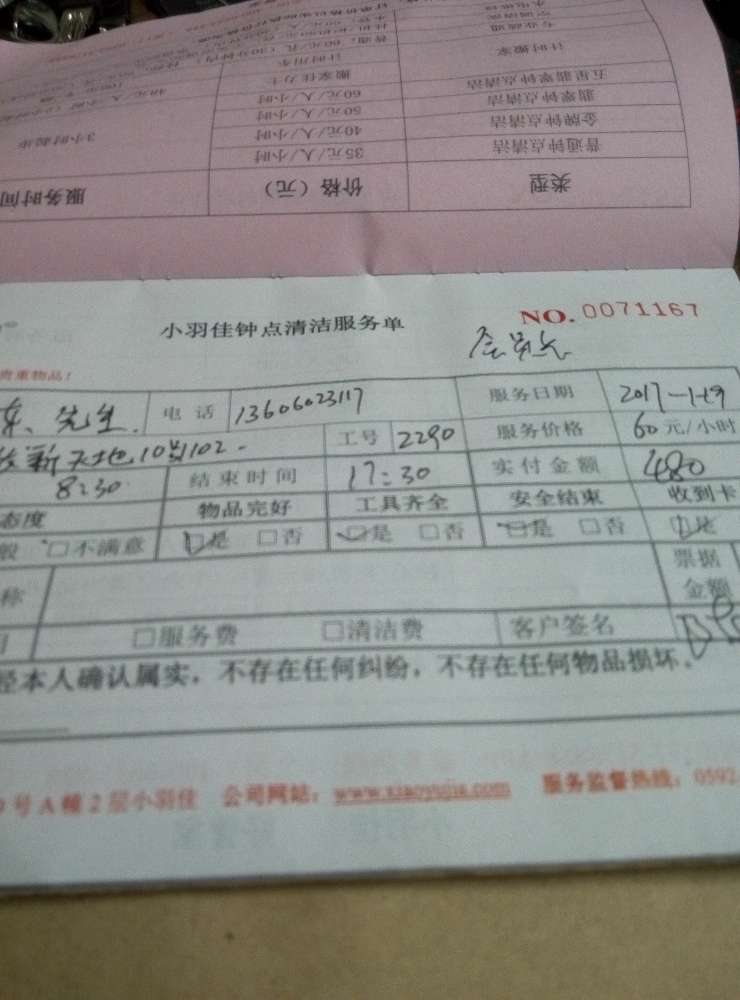 类型 价格（元） 服务时间
普通钟点清洁 35元/人/小时
金牌钟点清洁 40元/人/小时 3小时起步
翡翠钟点清洁 50元/人/小时
五星翡翠钟点清洁 60元/人/小时
搬家佳力士
计时搬家 计时用车
小羽佳钟点清洁服务单 NO. 0071167
贵重物品！
先生. 电话 13606023117 服务日期 2017-1-19
新天地10#102. 工号 2290 服务价格 60元/小时
8:30 结束时间 17:30 实付金额 480
态度 物品完好 工具齐全 安全结束 收到卡
般 □不满意 □是 □否 □是 □否 □是 □否 □是
称 票据
金额
□服务费 □清洁费 客户签名
经本人确认属实，不存在任何纠纷，不存在任何物品损坏。
号A幢2层小羽佳 公司网站：www.xiaoyujia.com 服务监督热线：0592